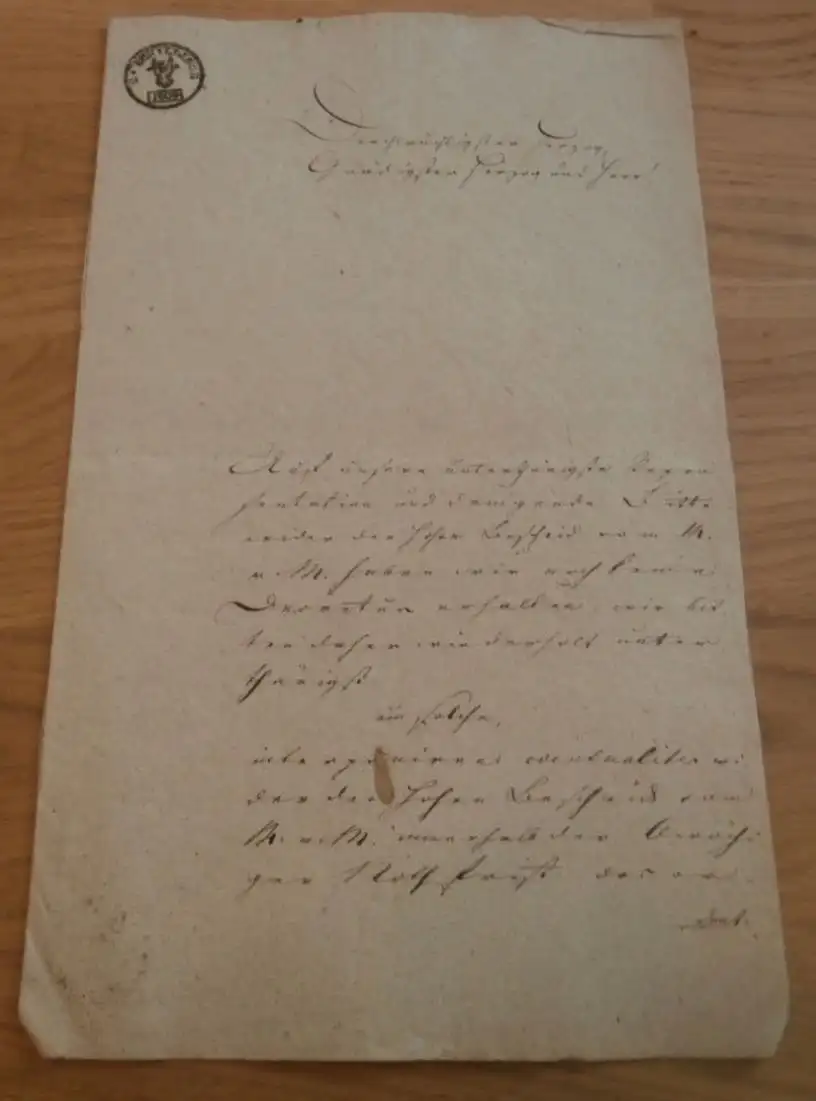 Durchlauchtigster Herzog,
Gnädigster Herzog und Herr!
Auf unsere unterthänigste Reprä
sentation und dringende Bitte
wider den hohen Bescheid vom M.
v. M. haben wir noch keine
erhalten, wir bit
ten daher wiederholt unter
thänigst
um solche,
interponiren eventualiter wi
der den hohen Bescheid vom
M. v. M. innerhalb der
gen Noth Frist das